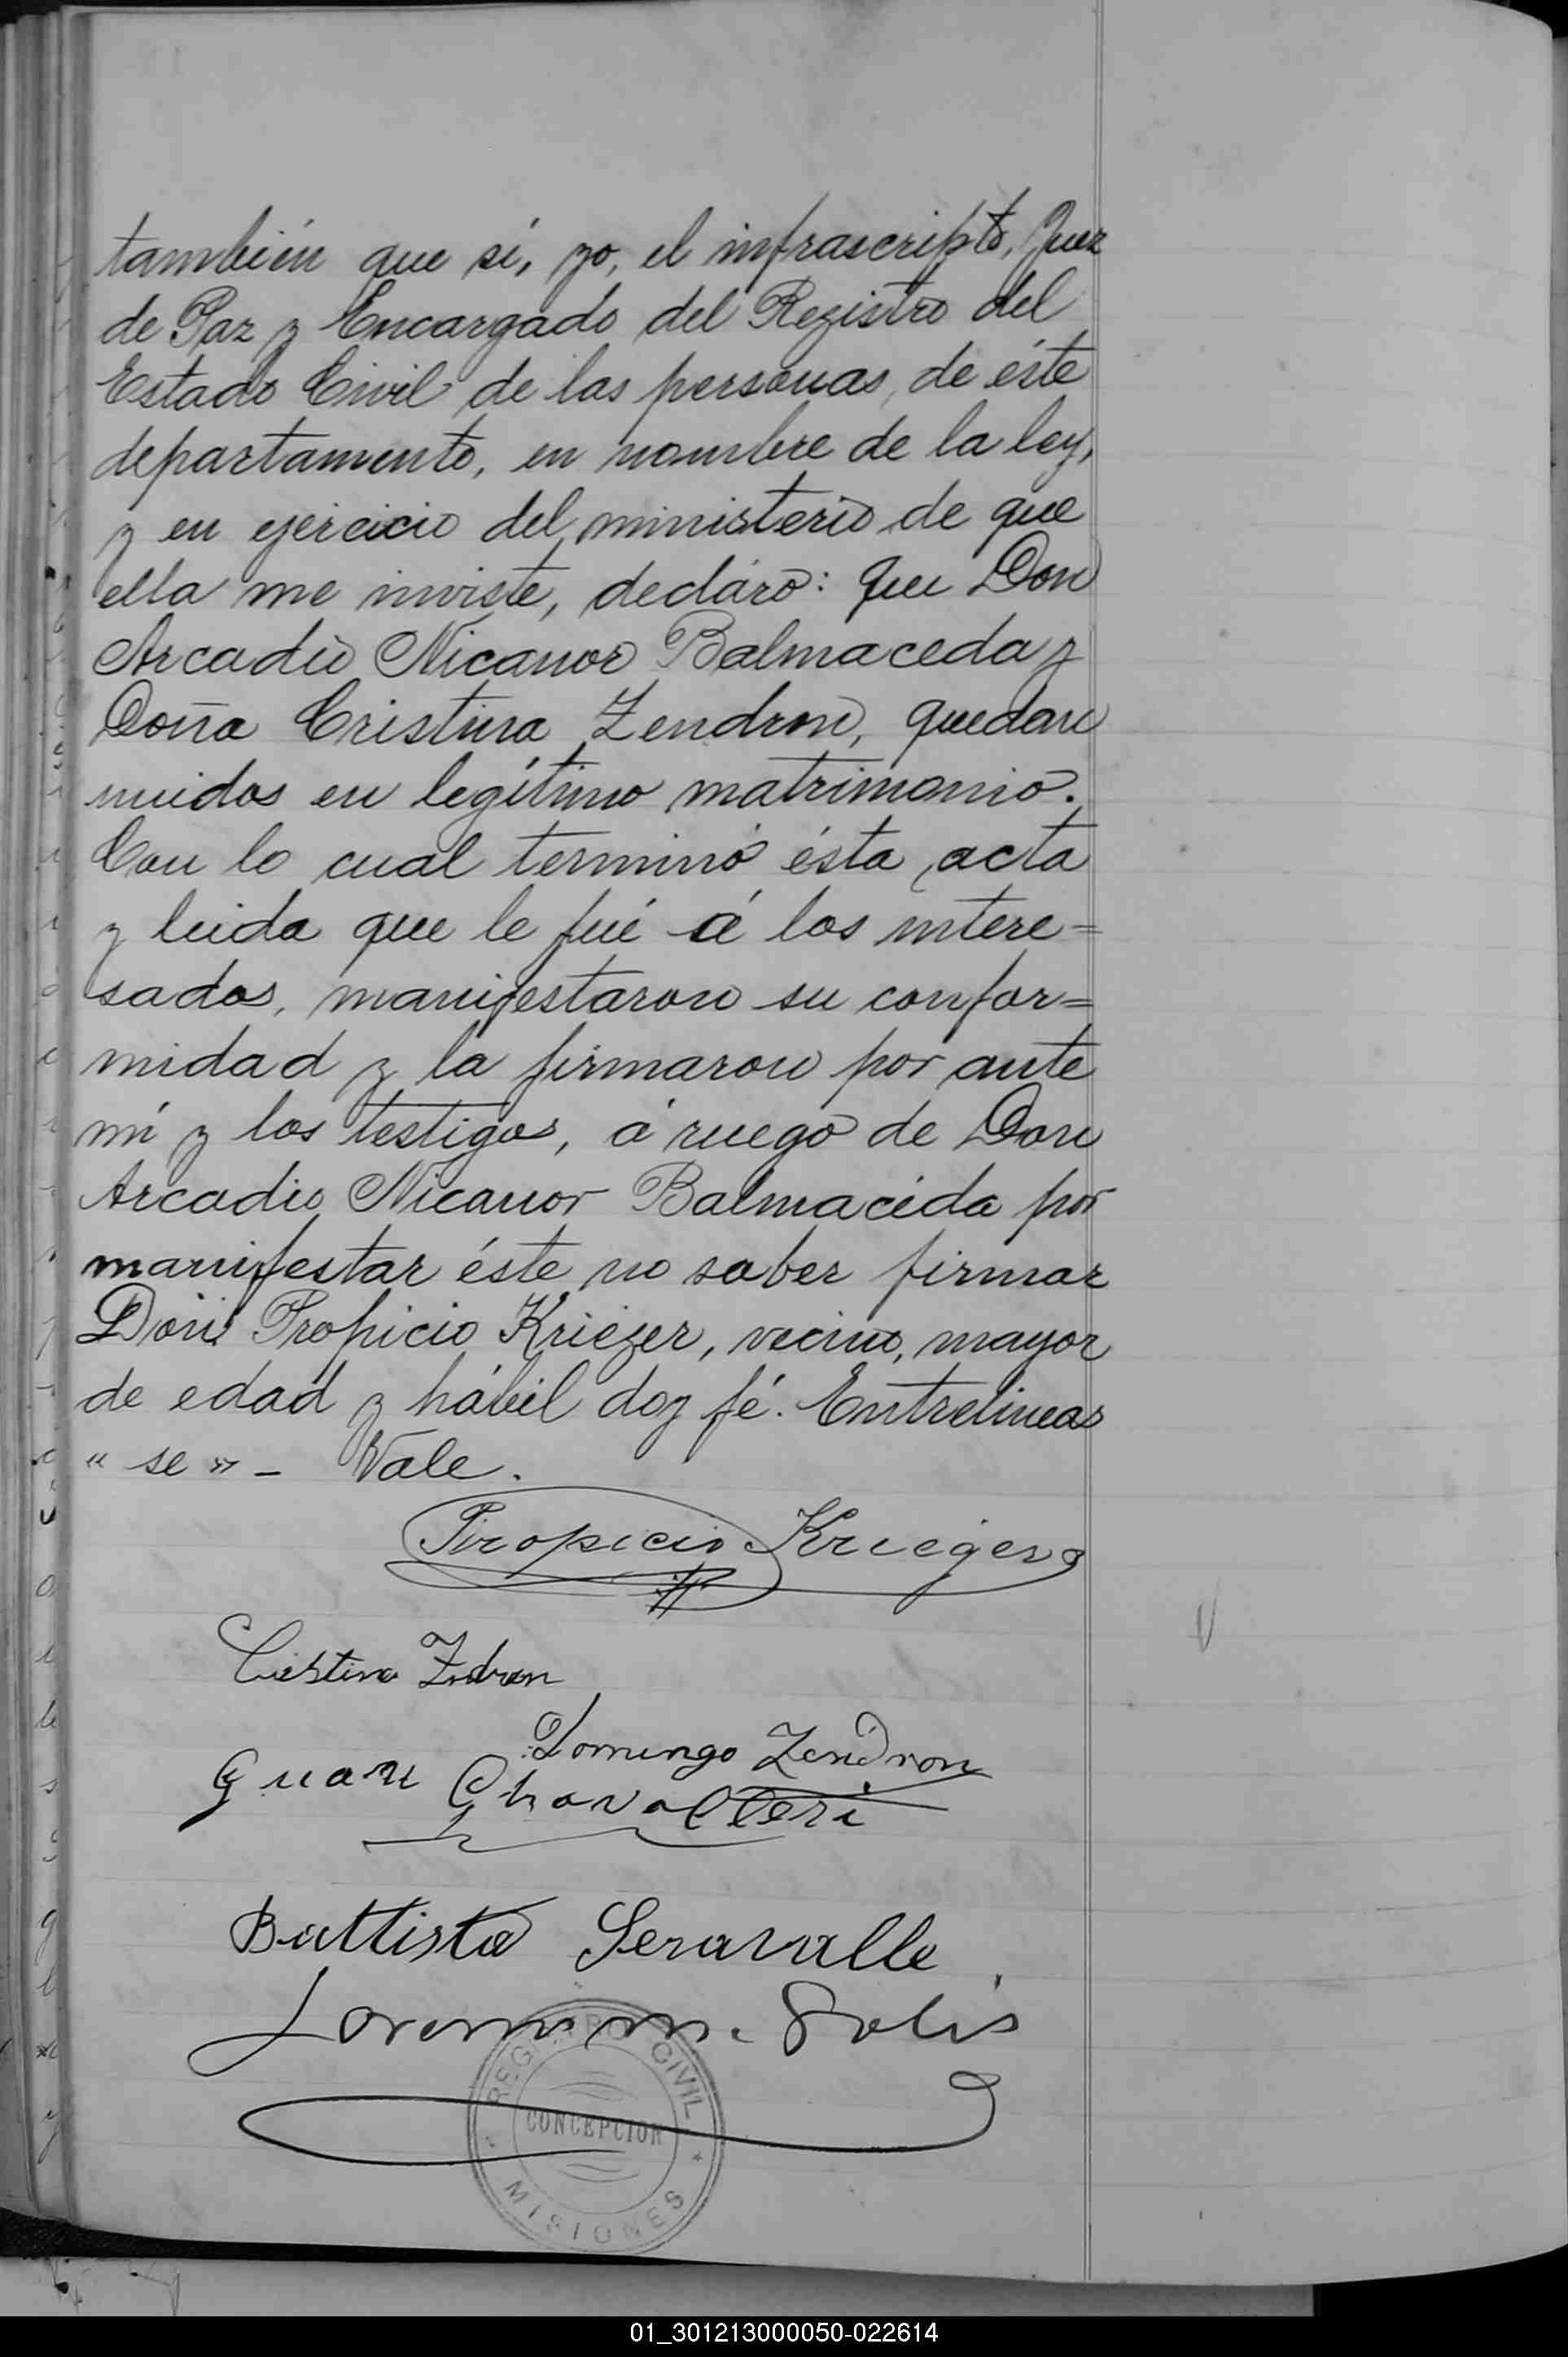 también que sí, yo, el infrascripto, Juez
de Paz y Encargado del Registro del
Estado Civil de las personas, de éste
departamento, en nombre de la ley,
y en ejercicio del ministerio de que
ella me inviste, decláro: que Don
Arcadio Nicanor Balmaceda y
Doña Cristina Zendron, quedan
unidos en legítimo matrimonio.
Con lo cual terminó ésta acta
y leida que le fué á los intere=
sados, manifestaron su confor=
midad y la firmaron por ante
mí y los testigos, á ruego de Don
Arcadio Nicanor Balmaceda por
manifestar éste no saber firmar
Don Propicio Kriezer, vecino, mayor
de edad y hábil doy fé. Entrelineas
« se » - Vale.
Propicio Krieger
Cristina Zendron
Domingo Zendron
Guan Chavalleri
Battista Seravalle
m. Solis
REGISTRO CIVIL
CONCEPCION
MISIONES
01_301213000050-022614